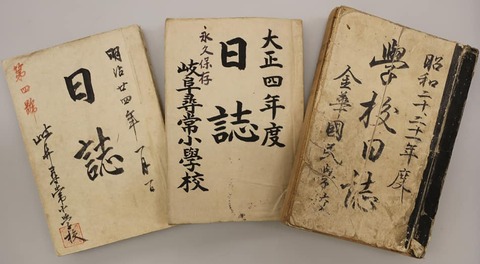 明治廿四年
日誌
第四號
岐阜尋常小学校
大正四年度
日誌
永久保存
岐阜尋常小學校
昭和二十、二十一年度
學校日誌
金華國民學校